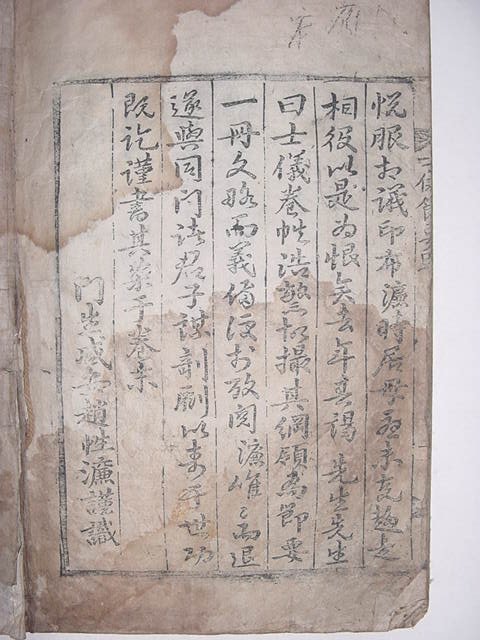 悅服相議印布濂時居母憂未克趨走
相役以是為恨矣去年春謁 先生先生
曰士儀卷帙浩繁故撮其綱領為節要
一冊文略而義備便於攷閱濂唯〻而退
遂與同門諸君子謀剞劂以壽于世功
既訖謹書其槩于卷末
門生咸安趙性濂謹識